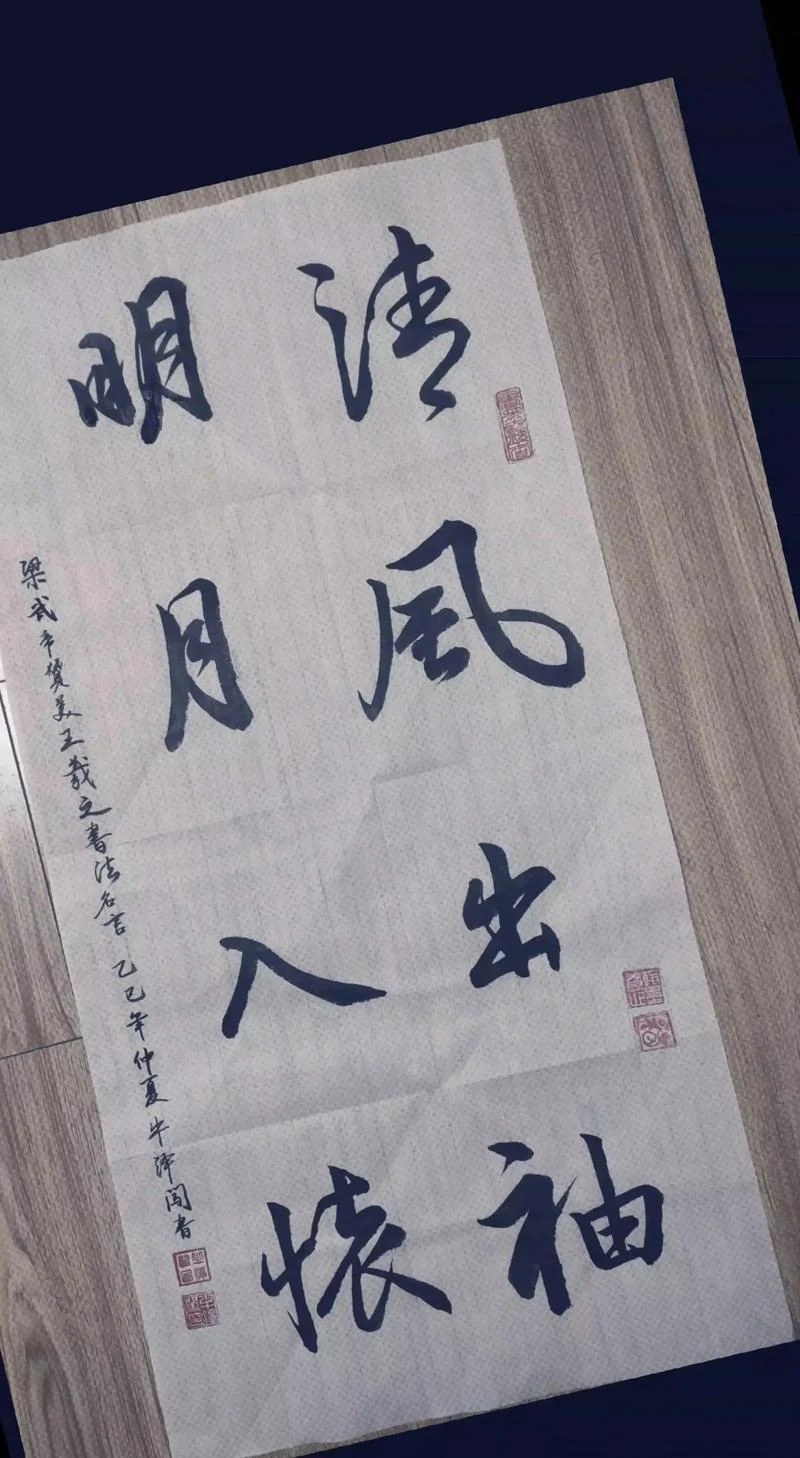 清風出袖
明月入懐
梁武帝贊美王羲之書法名言 乙巳年仲夏 牛泽闯書